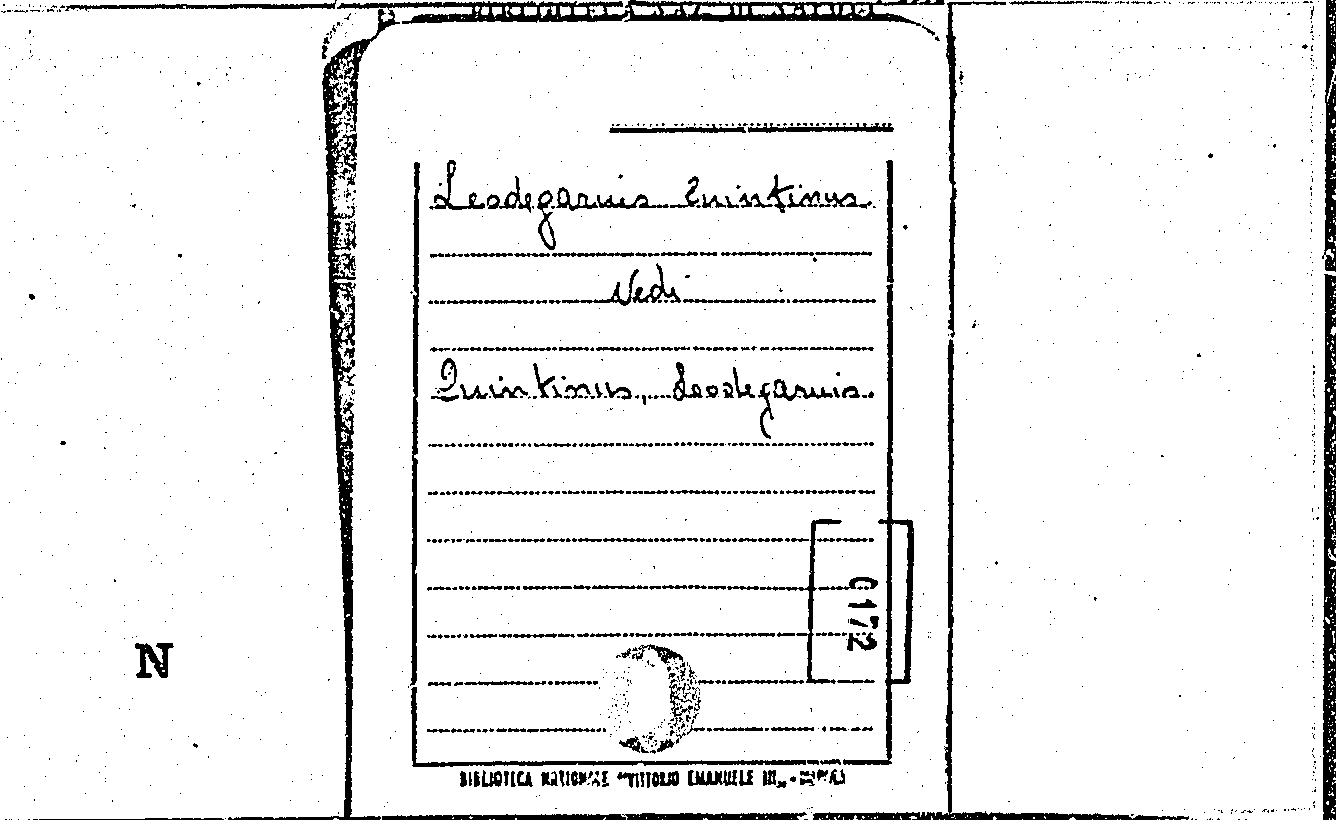 Leodegarius Quintinus
Vedi
Quintinus, Leodegarius
0172
N
BIBLIOTECA NAZIONALE "VITTORIO EMANUELE III" - NAPOLI